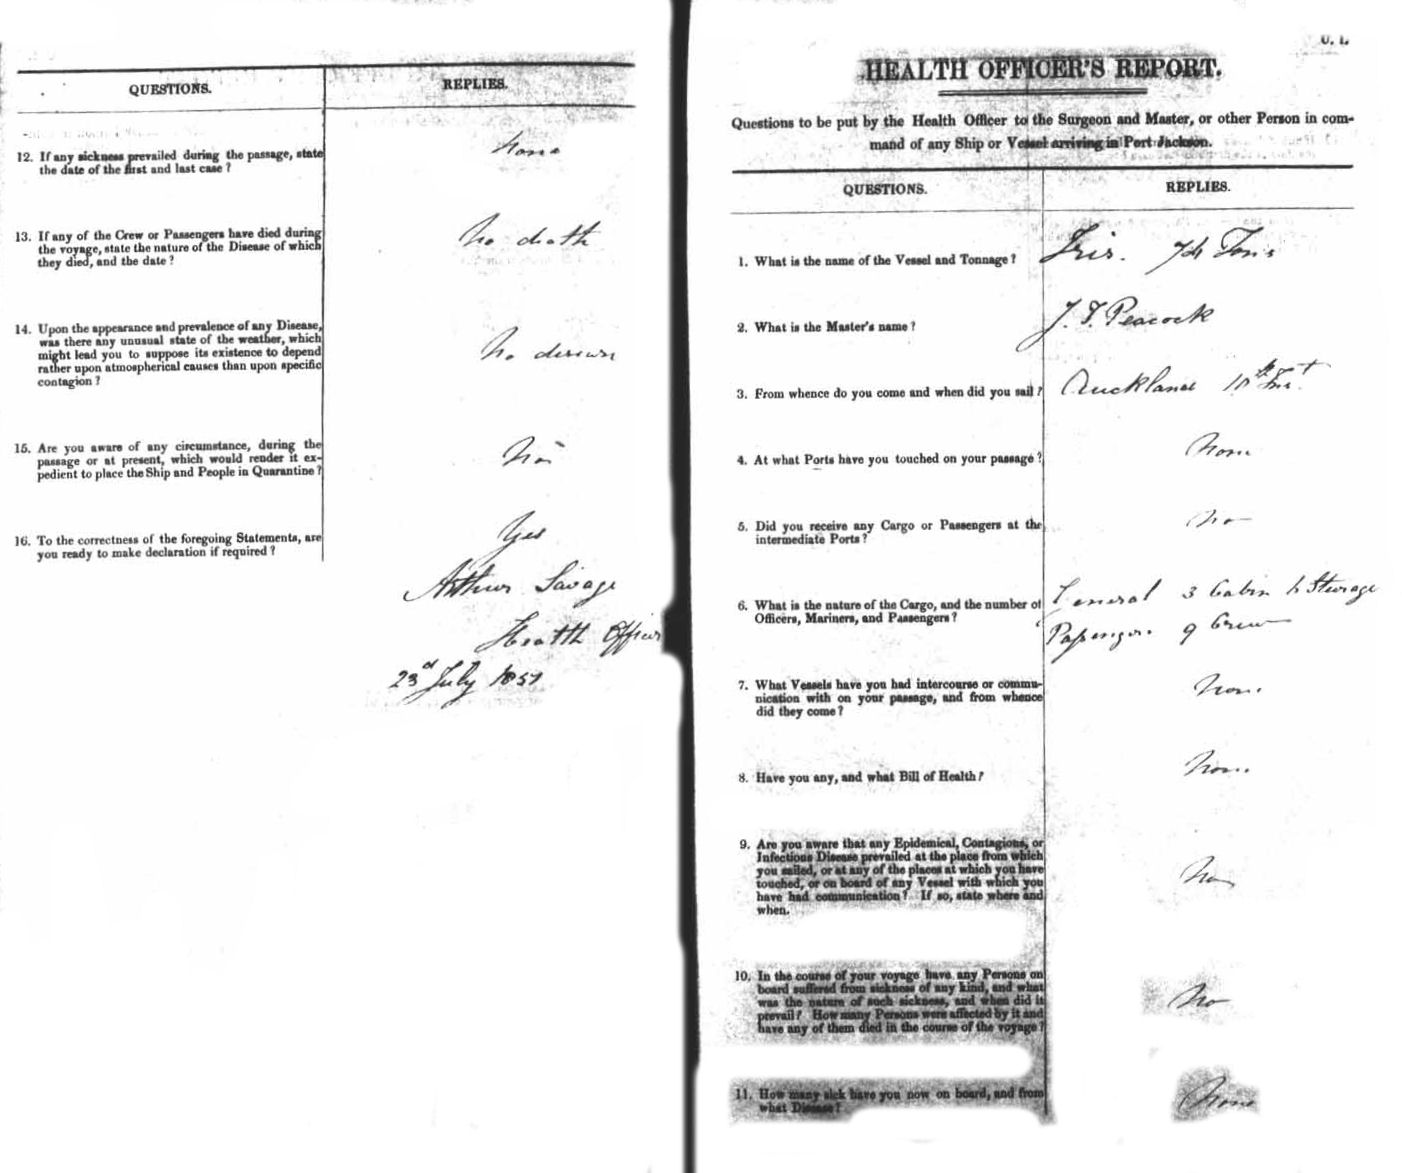 QUESTIONS.
REPLIES.
12. If any sickness prevailed during the passage, state
the date of the first and last case?
None
13. If any of the Crew or Passengers have died during
the voyage, state the nature of the Disease of which
they died, and the date?
No death
14. Upon the appearance and prevalence of any Disease,
was there any unusual state of the weather, which
might lead you to suppose its existence to depend
rather upon atmospherical causes than upon specific
contagion?
No disease
15. Are you aware of any circumstance, during the
passage or at present, which would render it ex-
pedient to place the Ship and People in Quarantine?
No
16. To the correctness of the foregoing Statements, are
you ready to make declaration if required?
Yes
Arthur Savage
Health Officer
23d July 1851
HEALTH OFFICER'S REPORT.
Questions to be put by the Health Officer to the Surgeon and Master, or other Person in com-
mand of any Ship or Vessel arriving in Port Jackson.
QUESTIONS.
REPLIES.
1. What is the name of the Vessel and Tonnage?
Iris. Tons
2. What is the Master's name?
J. T. Peacock
3. From whence do you come and when did you sail?
Auckland 10th Inst
4. At what Ports have you touched on your passage?
None
5. Did you receive any Cargo or Passengers at the
intermediate Ports?
No
6. What is the nature of the Cargo, and the number of
Officers, Mariners, and Passengers?
General 3 Cabin Steerage
Passengers. 9 Crew
7. What Vessels have you had intercourse or commu-
nication with on your passage, and from whence
did they come?
None
8. Have you any, and what Bill of Health?
None
9. Are you aware that any Epidemical, Contagious, or
Infectious Disease prevailed at the place from which
you sailed, or at any of the places at which you have
touched, or on board of any Vessel with which you
have had communication? If so, state where and
when.
No
10. In the course of your voyage have any Persons on
board suffered from sickness of any kind, and what
was the nature of such sickness, and when did it
prevail? How many Persons were affected by it and
have any of them died in the course of the voyage?
No
11. How many sick have you now on board, and from
what Disease?
None